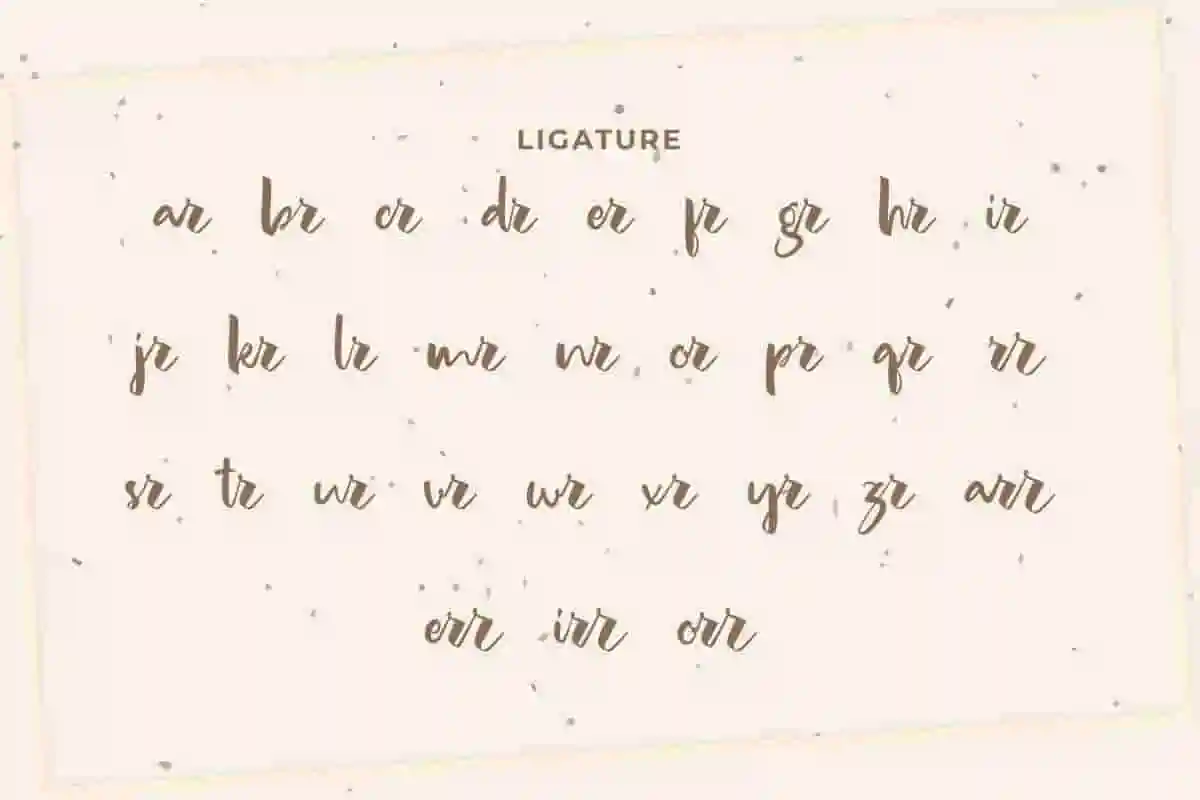 LIGATURE
ar br cr dr er fr gr hr ir
jr kr lr mr nr or pr qr rr
sr tr ur vr wr xr yr zr arr
err irr orr